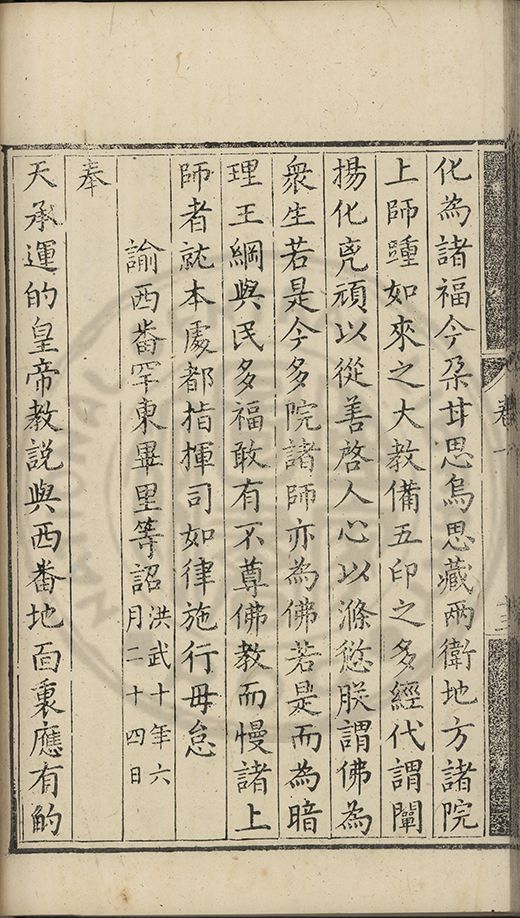 化為諸福今朶甘思烏思藏兩衛地方諸院
上師踵如來之大教備五印之多經代謂闡
揚化兇頑以從善啓人心以滌愆朕謂佛為
衆生若是今多院諸師亦為佛若是而為暗
理王綱與民多福敢有不尊佛教而慢諸上
師者就本處都指揮司如律施行毋怠
諭西畨罕東畢里等詔洪武十年六
月二十四日
奉
天承運的皇帝教説與西番地面裏應有的